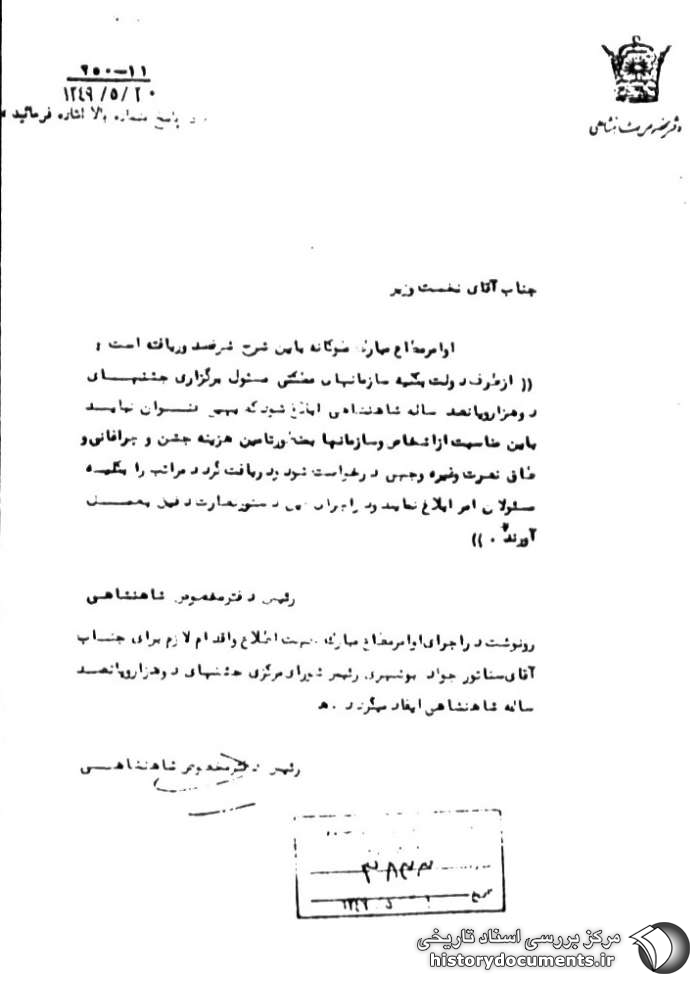 ۲۵۰-۱۱
۱۳۴۹/۵/۲۰
پاسخ بشماره بالا اشاره فرمائید
دفتر مخصوص شاهنشاهی
جناب آقای نخست وزیر
اوامر مطاع مبارک ملوکانه باین شرح شرفصدور یافته است :
(( ازطرف دولت بکلیه سازمانهای مملکتی مسئول برگزاری جشنهای
دوهزاروپانصد ساله شاهنشاهی ابلاغ شود که بهیچ عنوان نباید
باین مناسبت ازاشخاص وسازمانها بمنظورتامین هزینه جشن و چراغانی و
طاق نصرت وغیره وجهی درخواست شود ودریافت گردد مراتب را بکلیه
مسئولان امر ابلاغ نمایند ودراجرای این دستورنظارت دقیق بعمل
آورند . ))
رئیس دفترمخصوص شاهنشاهی
رونوشت دراجرای اوامرمطاع مبارک جهت اطلاع واقدام لازم برای جناب
آقای سناتور جواد بوشهری رئیس شورای مرکزی جشنهای دوهزاروپانصد
ساله شاهنشاهی ایفاد میگردد .ه
رئیس دفترمخصوص شاهنشاهی
تاریخ
مرکز بررسی اسناد تاریخی
historydocuments.ir